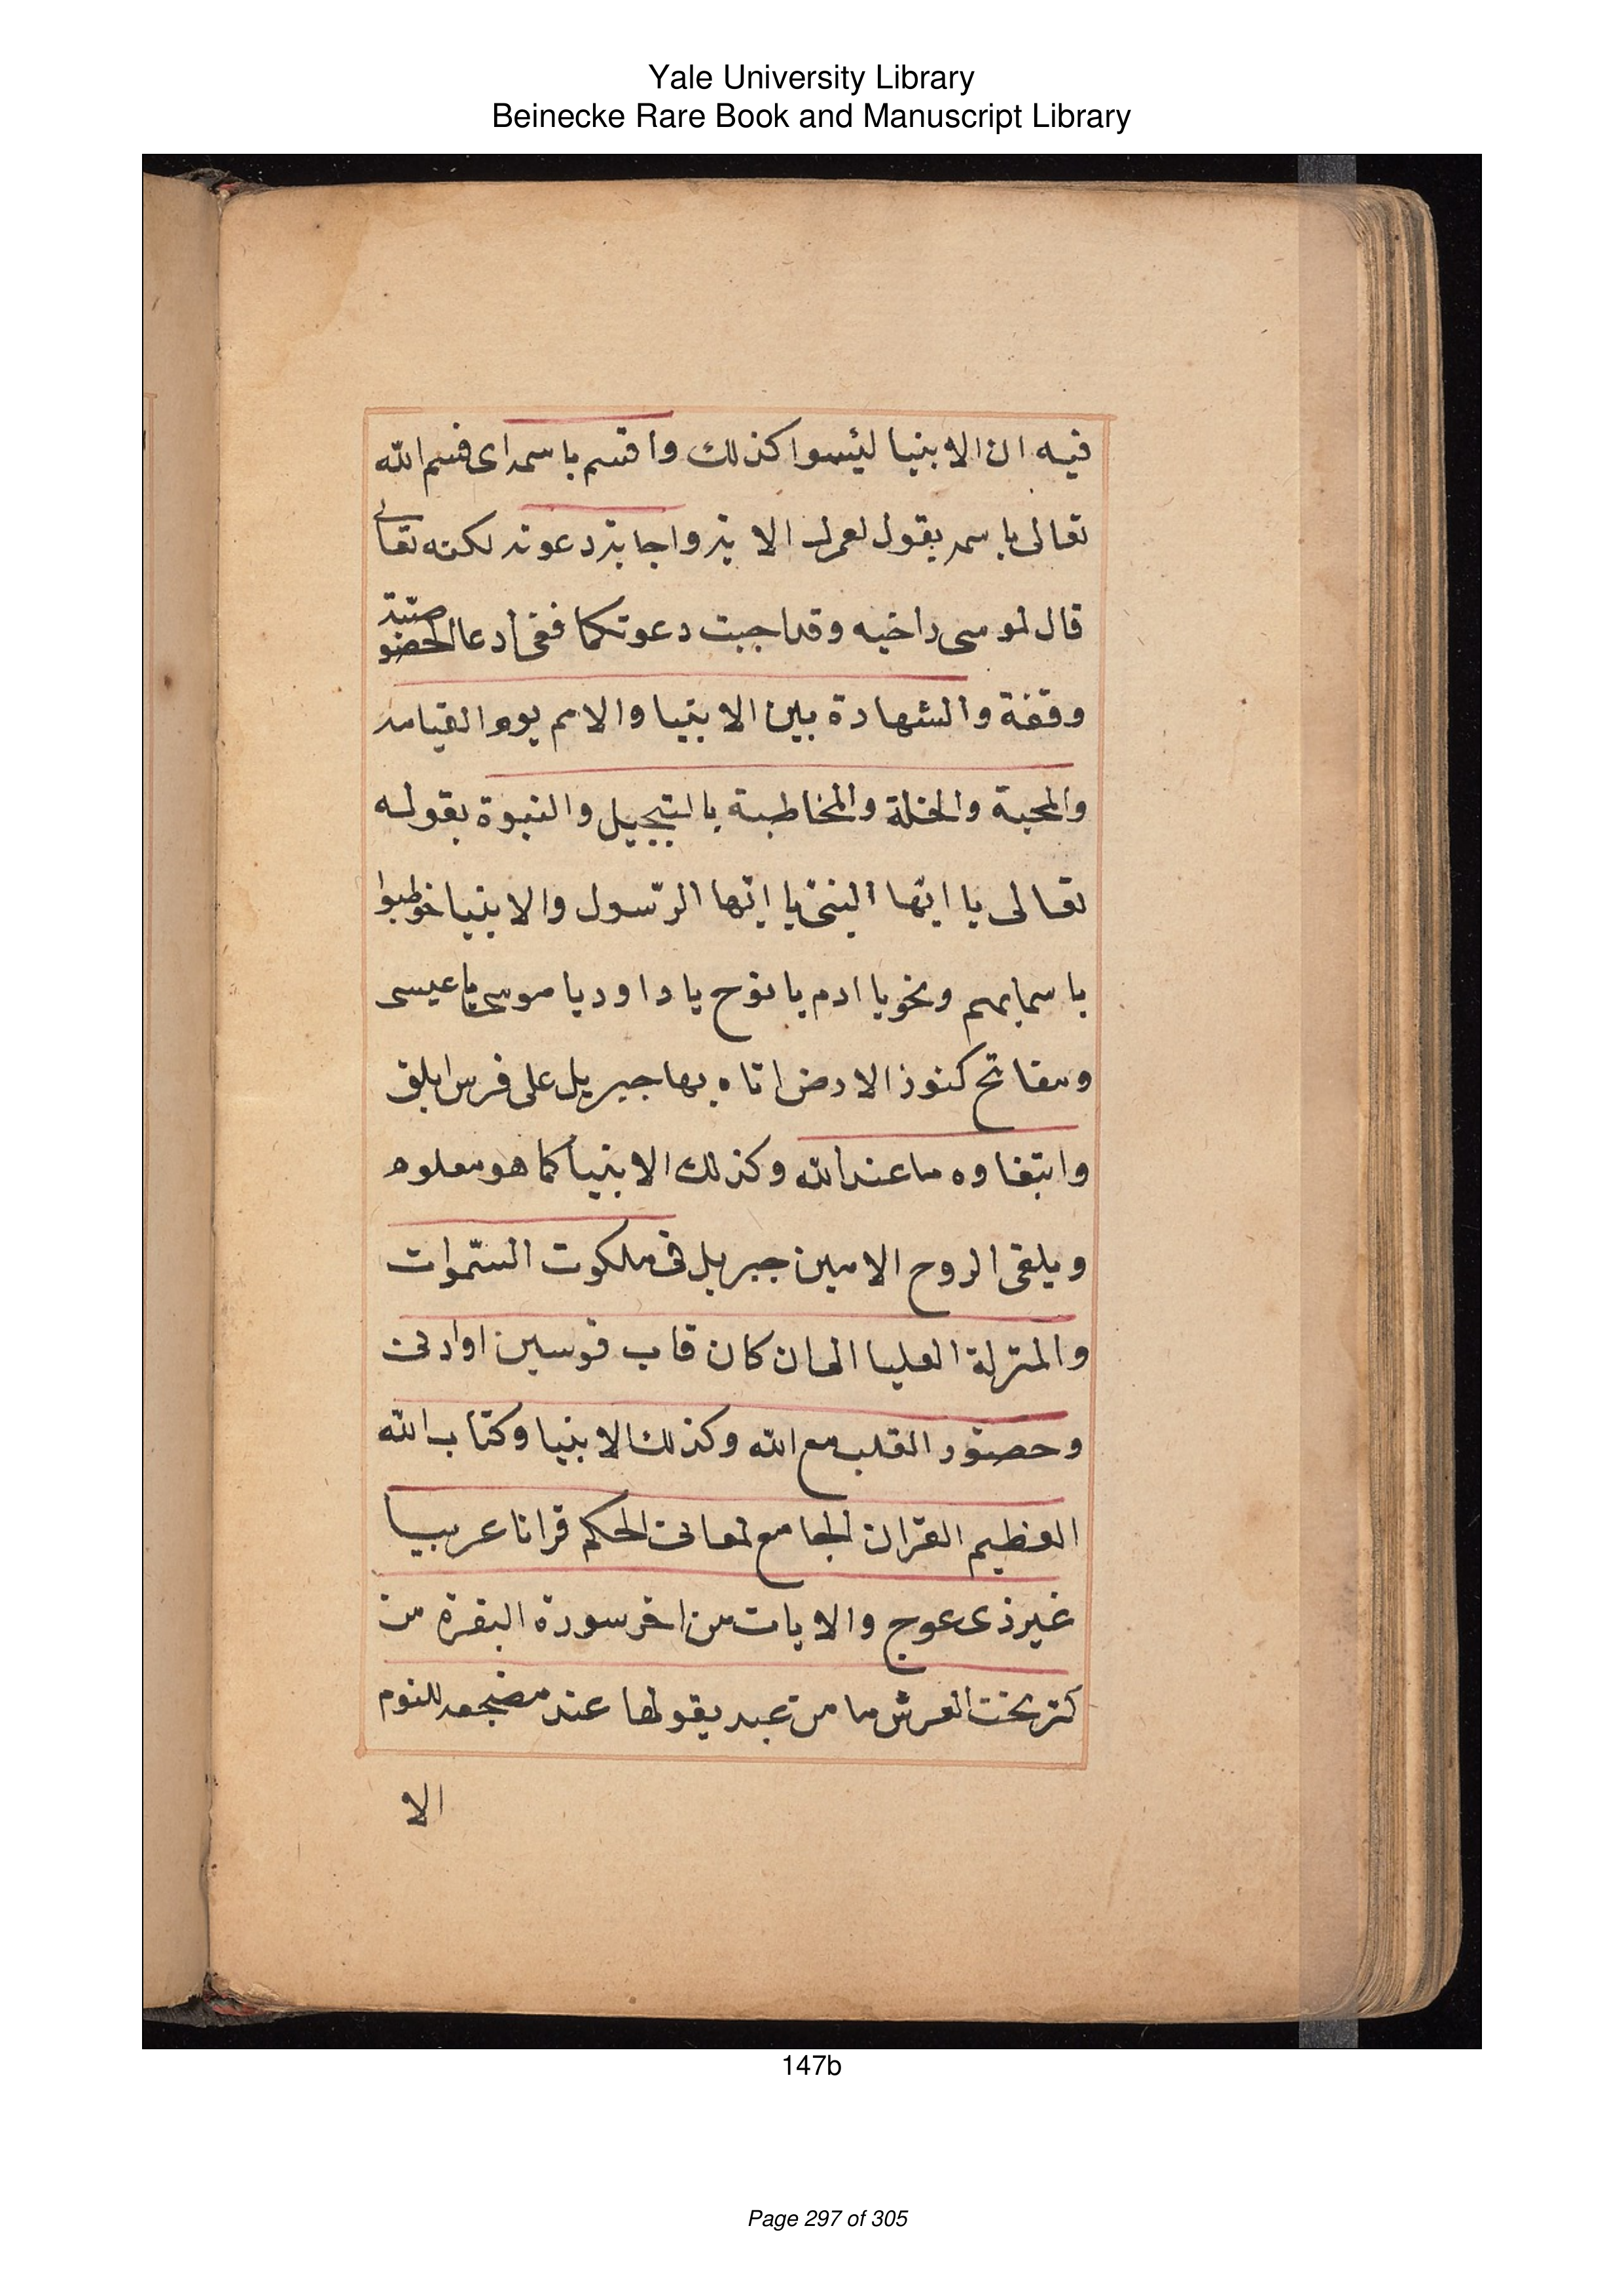 Yale University Library
Beinecke Rare Book and Manuscript Library
فيه ان الانبيا ليسوا كذلك واقسم باسمه اى قسم الله
تعالى باسمه بقول لعمرك الاية واجابة دعوته لكنه تعالى
قال لموسى واخيه وقد اجيبت دعوتكما ففى ادعا الخصوصية
وقفة والشهادة بين الانبيا والامم يوم القيامه
والمحبة والخلة والمخاطبة بالتبجيل والنبوة بقوله
تعالى يا ايها النبى يا ايها الرسول والانبيا خوطبوا
باسمايهم ونحو يا ادم يا نوح يا داود يا موسى يا عيسى
ومفاتح كنوز الارض اتاه بها جبريل على فرس ابلق
وابتغاوه ما عند الله وكذلك الانبيا كما هو معلوم
ويلقى الروح الامين جبريل فى ملكوت السموات
والمنزلة العليا الى ان كان قاب قوسين او ادنى
وحضور القلب مع الله وكذلك الانبيا وكتاب الله
العظيم القران الجامع لمعانى الحكم قرانا عربيا
غير ذى عوج والايات من اخر سورة البقرة من
كنز تحت العرش ما من عبد يقولها عند مضجعه للنوم
الا
147b
Page 297 of 305